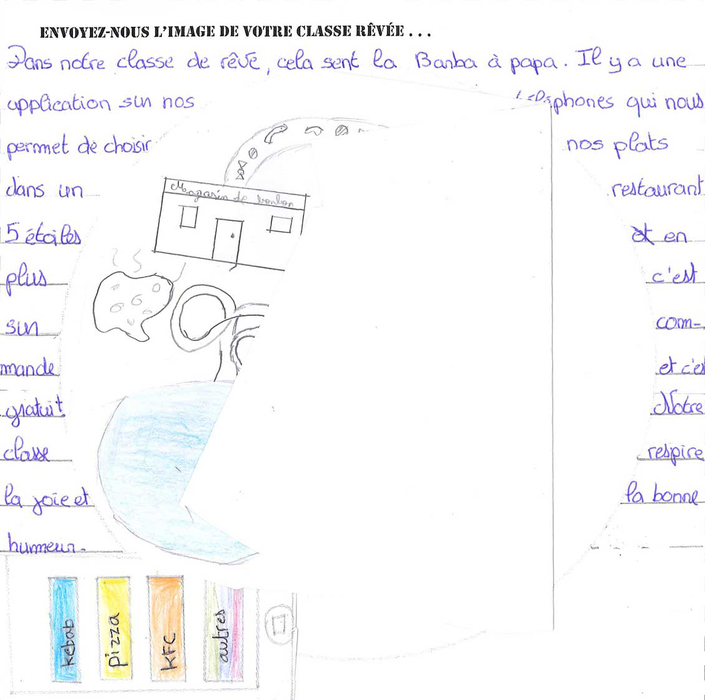 ENVOYEZ-NOUS L'IMAGE DE VOTRE CLASSE RÊVÉE . . .
Dans notre classe de rêve, cela sent la Banba à papa. Il y a une
application sur nos phones qui nous
permet de choisir nos plats
dans un restaurant
5 étoiles et en
plus c'est
sur com-
mande et c'es
gratuit Notre
classe respire
la joie et la bonne
humeur.
Magasin de bonbon
kebab
pizza
KFC
autres